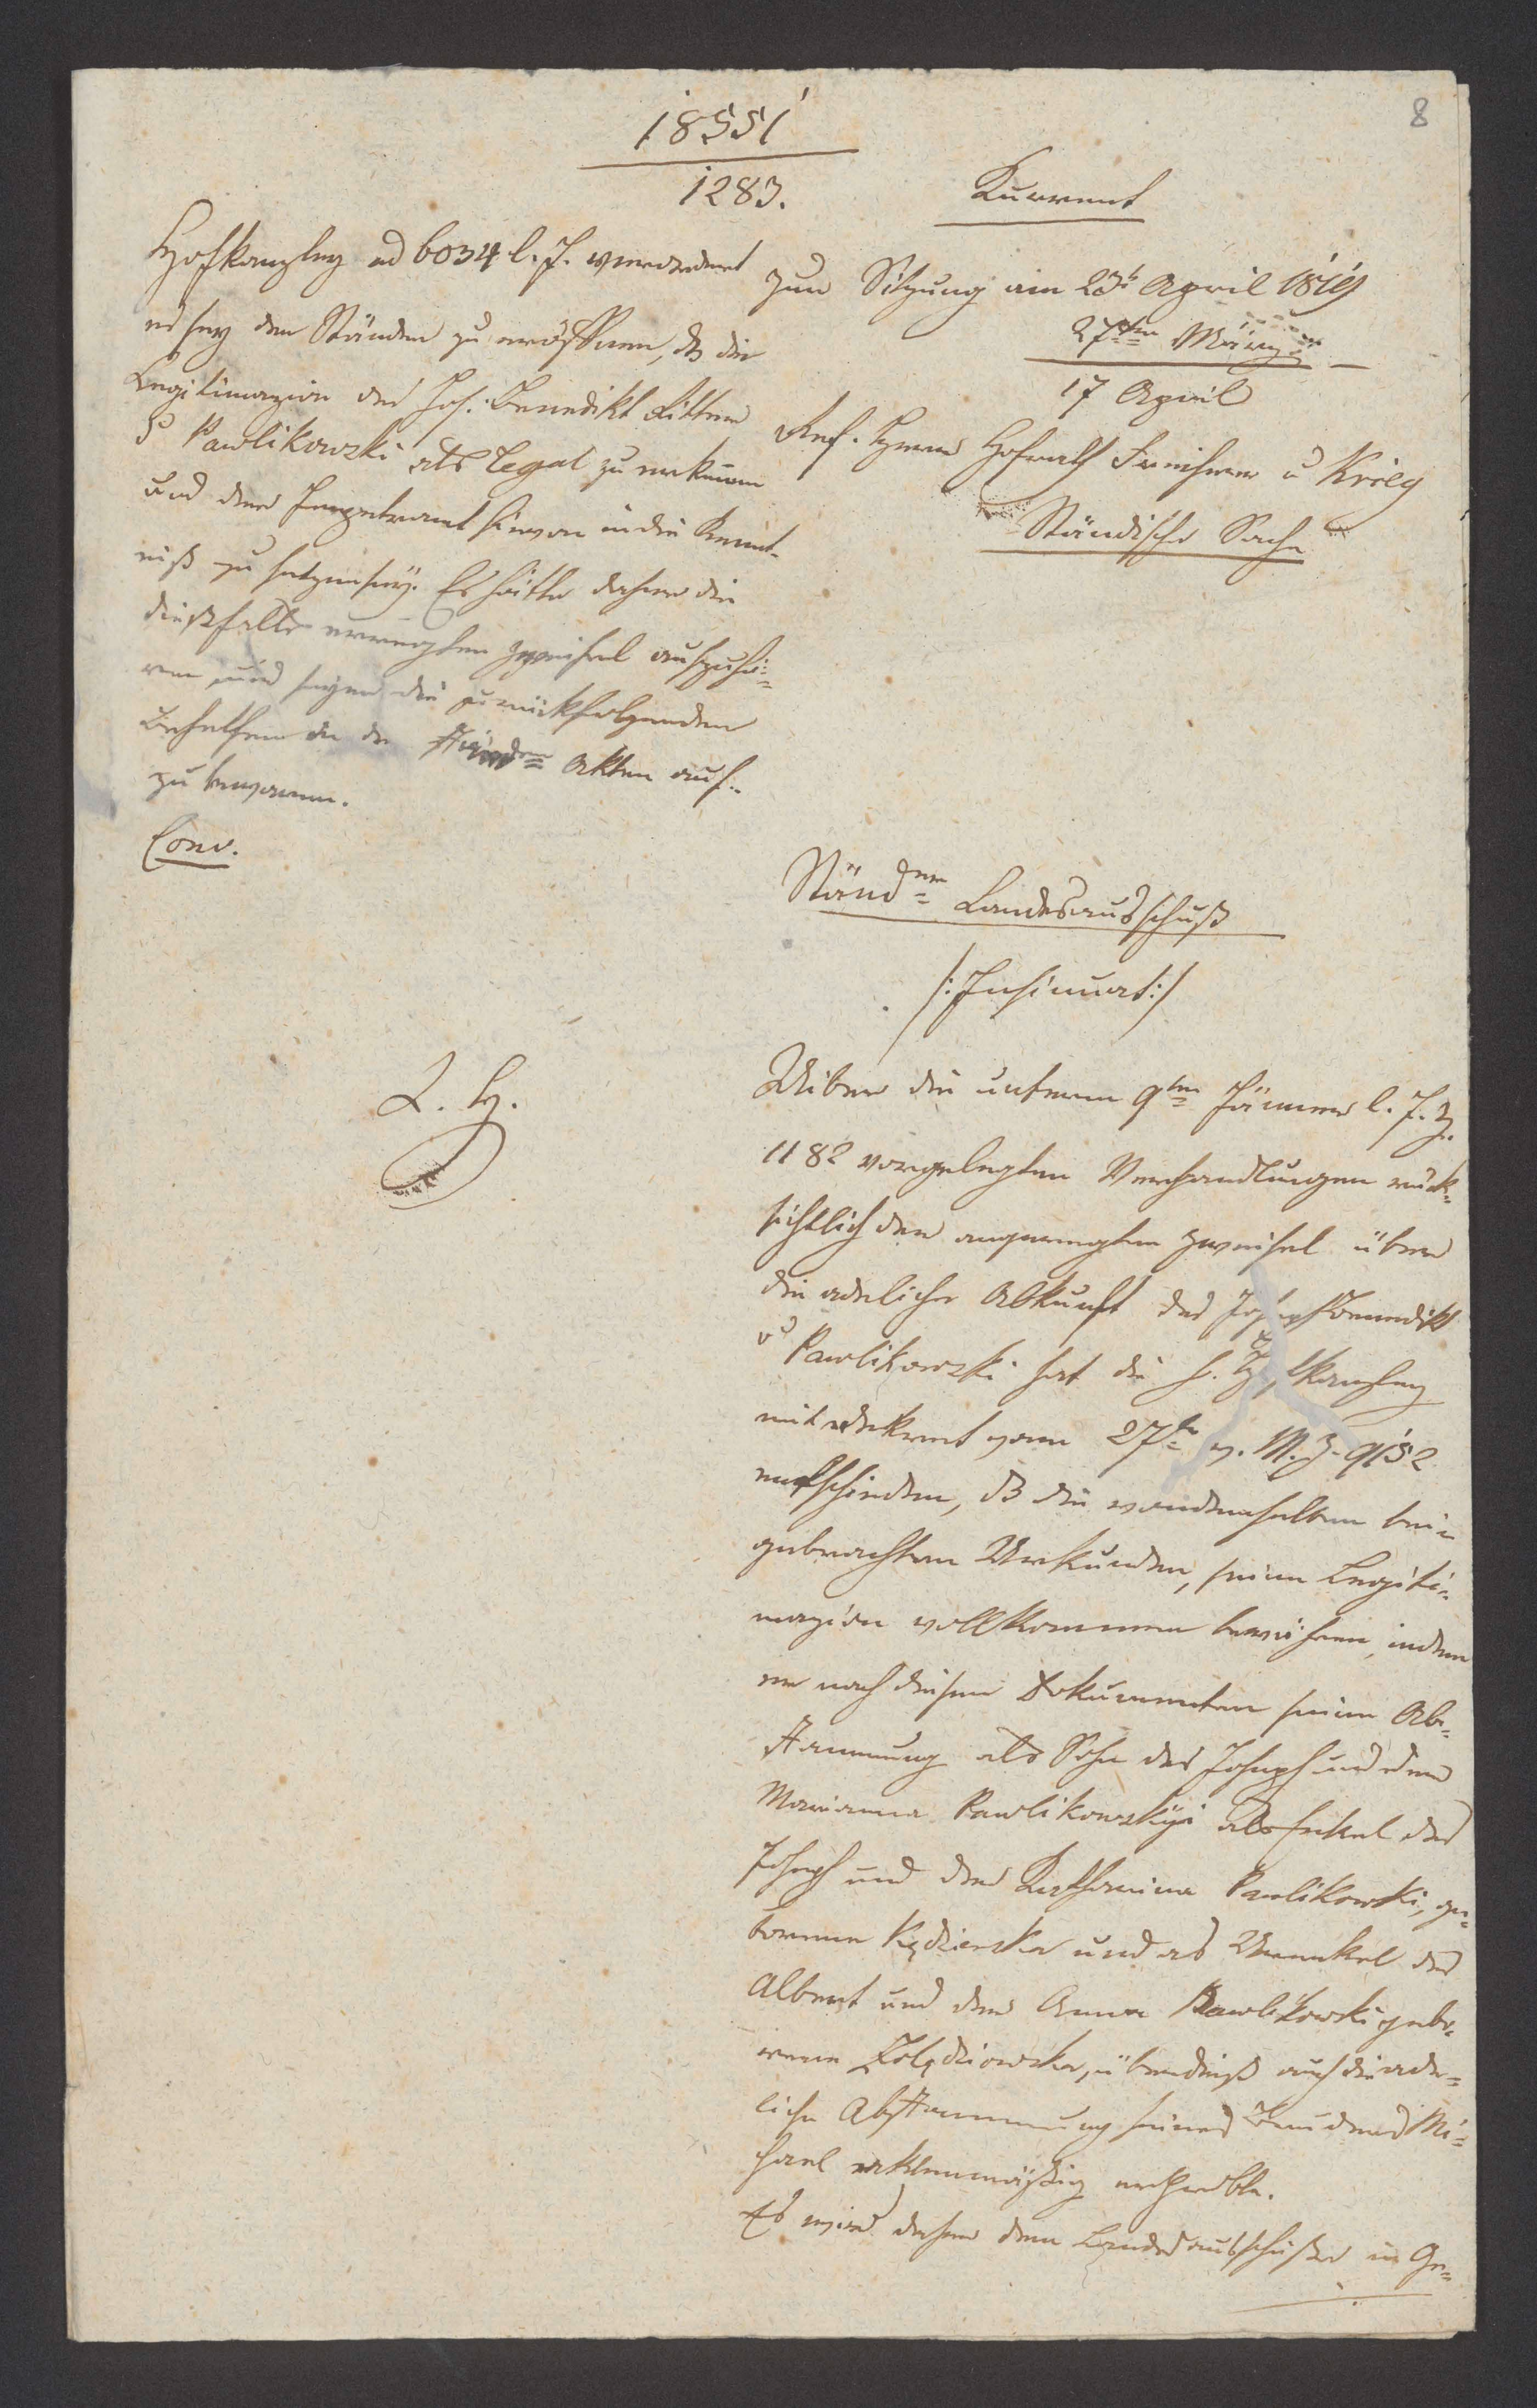 8
18551
1283.
Kurrent
Hofkanzley ad 6034 l. J. verordnet
es sey den Ständen zu eröffnen, dß die
Legitimazion des Jos. Benedikt Ritter
v Pawlikowski als legal zu erkennen
und der Impetrant hievon in die Kennt-
niß zu setzen sey. Es hätte daher die
dießfalls erregten Zweifel
und seyen die zurückfolgenden
Behelfen in den Ständn Akten auf-
zu bewaren.
Conv.
zur Sitzung am 23t April 1819
27ten März
17 April
Ref. Herr Hofrath Freiherr v Krieg
Ständische Sache
Ständr Landesausschuß
/: Insinuat :/
Uiber die unterm 9ten Jänner l. J. Z.
1182 vorgelegten Verhandlungen rück-
sichtlich der angeregten Zweifel über
die adeliche Abkunft des Joseph Benedikt
v Pawlikowski hat die h. Hofkanzley
mit Dekret vom 27ten v. M. Z. 9152
entschieden, dß die von demselben bei-
gebrachten Urkunden, seine Legiti-
mazion vollkommen bewähren, indem
er nach diesen Dokumenten seine Ab-
stammung als Sohn des Joseph und der
Marianna Pawlikowskyi als Enkel des
Joseph und der Katharina Pawlikowski, ge-
borenen Kędzierska und als Urenkel des
Albert und der Anna Pawlikowski gebo-
renen Zołędziowska, überdieß auch die ade-
liche Abstammung seines Bruders Mi-
hael aktenmäßig
Es wird daher dem Landesausschuße in Ge-
L. H.